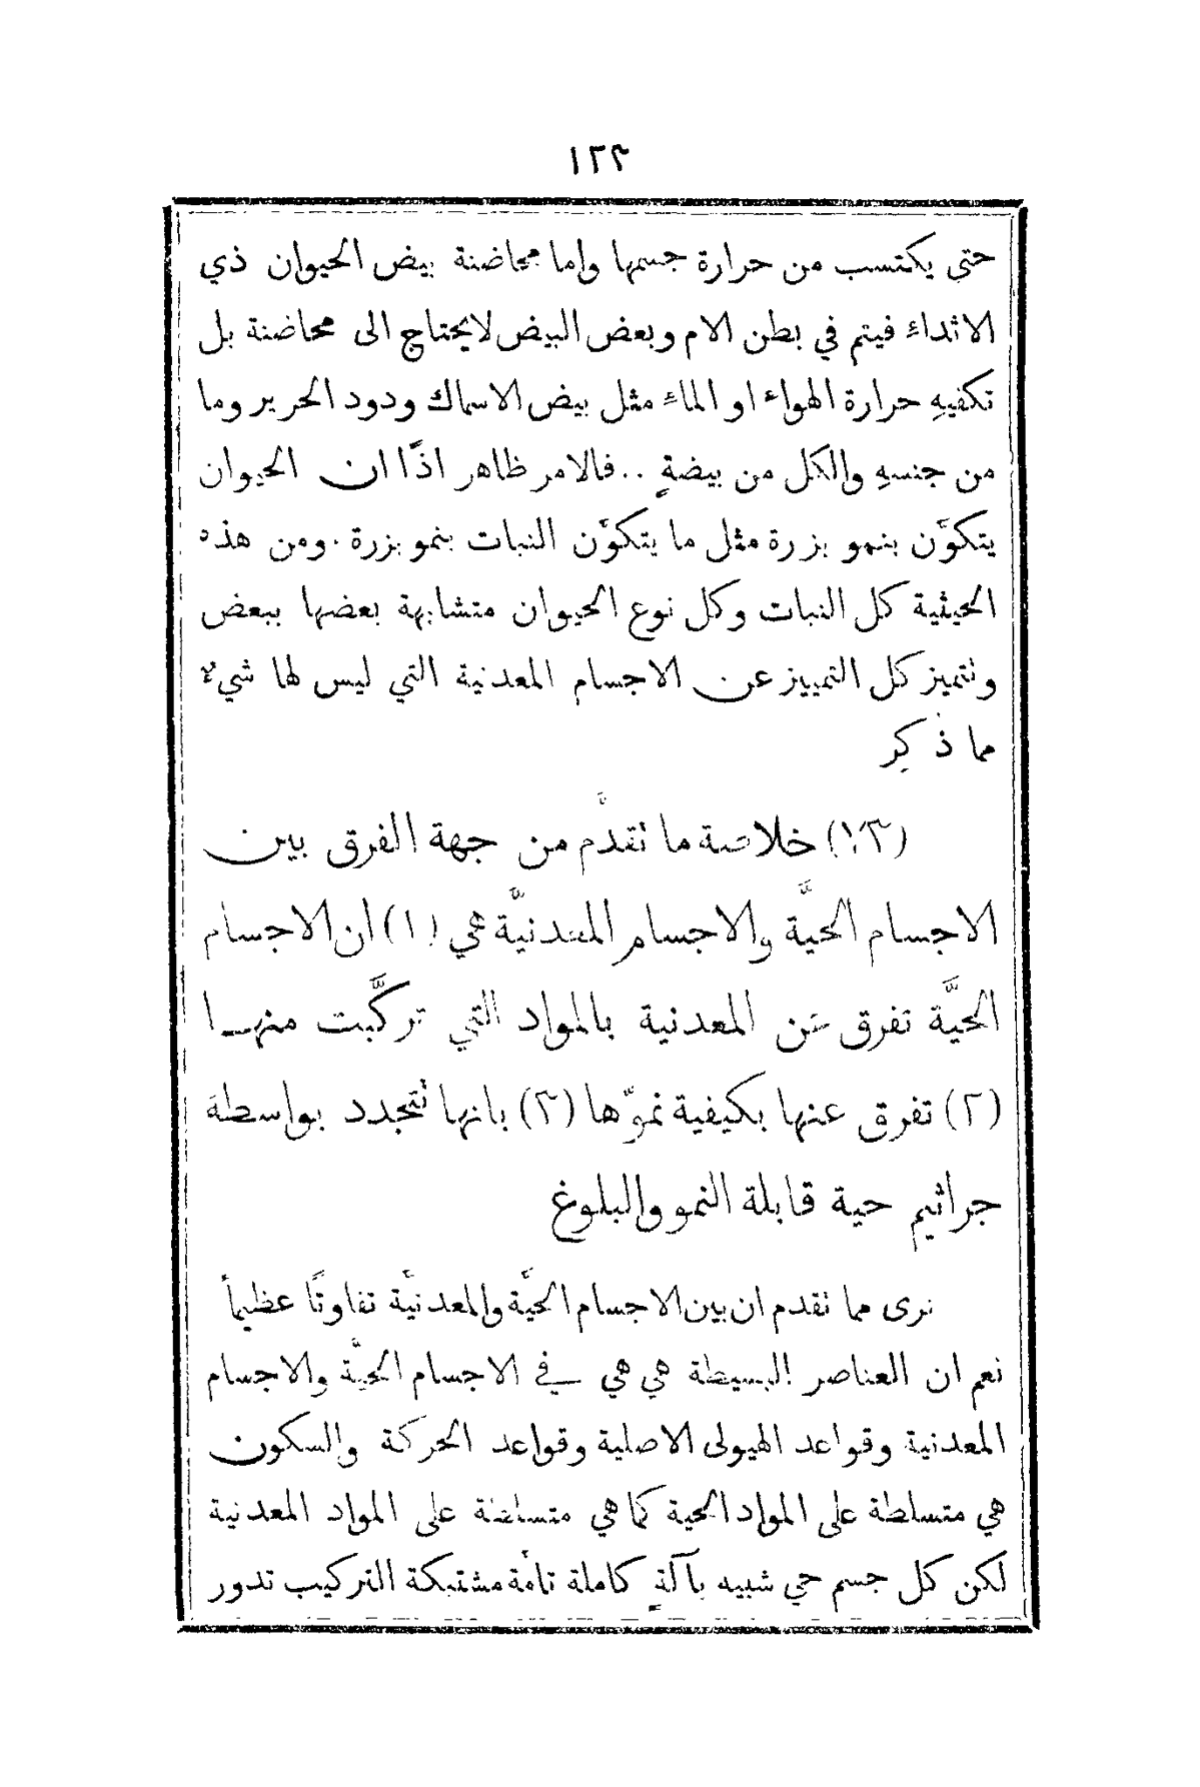 ١٢٣
حتى يكتسب من حرارة جسمها واما محاضنة بيض الحيوان ذي
الاثداء فيتم في بطن الام وبعض البيض لا يحتاج الى محاضنة بل
تكفيهِ حرارة الهواء او الماء مثل بيض الاسماك ودود الحرير وما
من جنسهِ والكل من بيضةٍ .. فالامر ظاهر اذًا ان الحيوان
يتكوَّن بنمو بزرة مثل ما يتكوَّن النبات بنمو بزرة . ومن هذه
الحيثية كل النبات وكل نوع الحيوان متشابهة بعضها ببعض
وتتميز كل التمييز عن الاجسام المعدنية التي ليس لها شيءٌ
مما ذُكِر
خلاصة ما تقدَّم من جهة الفرق بين
الاجسام الحيَّة والاجسام المعدنيَّة هي (١) ان الاجسام
الحيَّة تفرق عن المعدنية بالمواد التي تركَّبت منهـا
(٢) تفرق عنها بكيفية نموّها (٣) بانها تتجدد بواسطة
جراثيم حية قابلة النمو والبلوغ
نرى مما تقدم ان بين الاجسام الحيَّة والمعدنيَّة تفاوتًا عظيمًا
نعم ان العناصر البسيطة هي هي في الاجسام الحيَّة والاجسام
المعدنية وقواعد الهيولى الاصلية وقواعد الحركة والسكون
هي متسلطة على المواد الحية كما هي متسلطة على المواد المعدنية
لكن كل جسم حي شبيه بآلةٍ كاملة تامَّة مشتبكة التركيب تدور